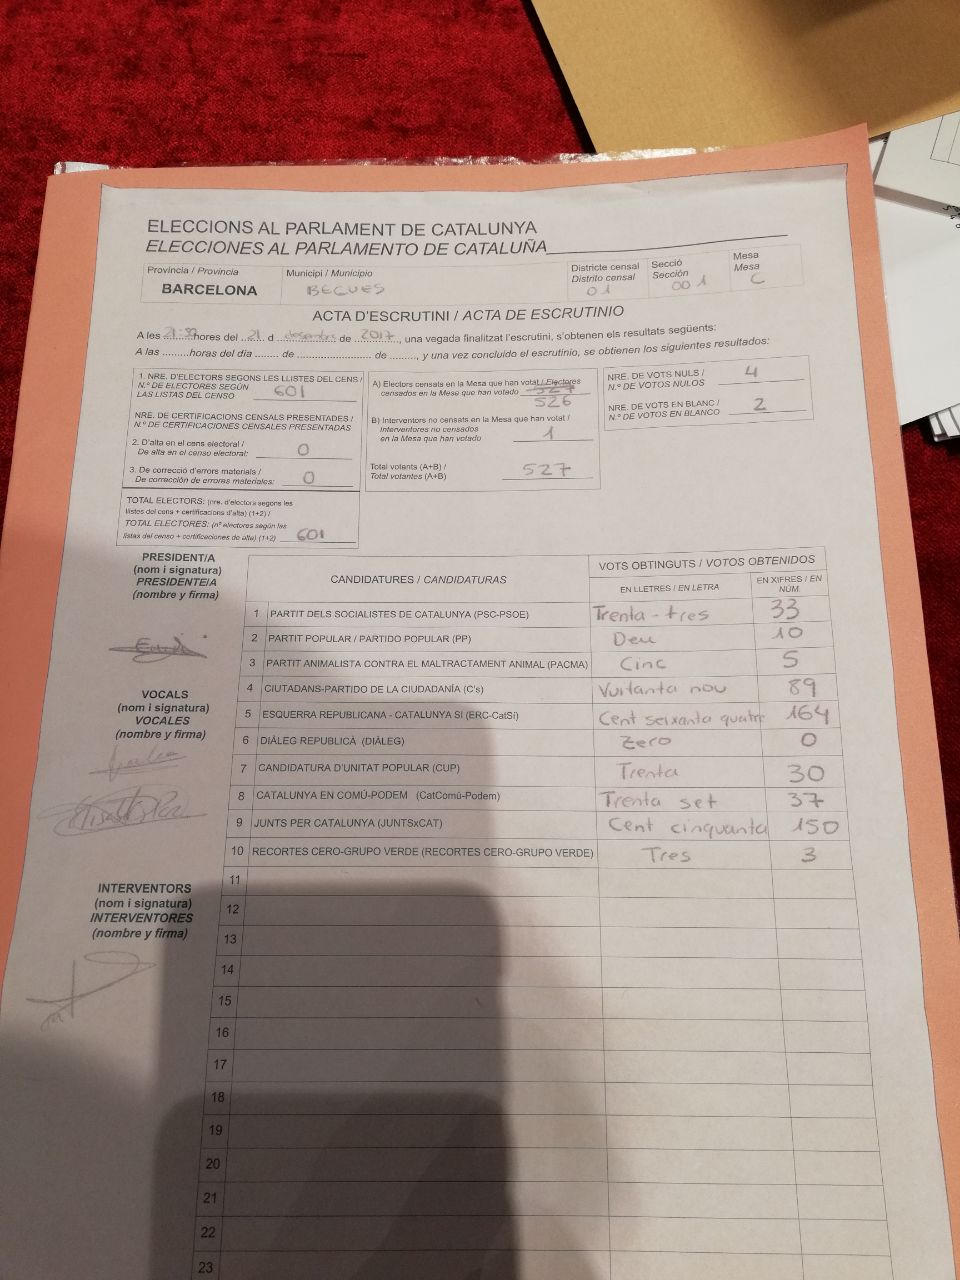 ELECCIONS AL PARLAMENT DE CATALUNYA
ELECCIONES AL PARLAMENTO DE CATALUÑA
Província / Provincia
BARCELONA
Municipi / Municipio
BEGUES
Districte censal
Distrito censal
01
Secció
Sección
001
Mesa
Mesa
C
ACTA D'ESCRUTINI / ACTA DE ESCRUTINIO
A les hores del 21 d desembre de 2017, una vegada finalitzat l'escrutini, s'obtenen els resultats següents:
A las .........horas del día ....... de ...................... de ........, y una vez concluido el escrutinio, se obtienen los siguientes resultados:
1. NRE. D'ELECTORS SEGONS LES LLISTES DEL CENS /
N.º DE ELECTORES SEGÚN
LAS LISTAS DEL CENSO 601
NRE. DE CERTIFICACIONS CENSALS PRESENTADES /
N.º DE CERTIFICACIONES CENSALES PRESENTADAS
2. D'alta en el cens electoral /
De alta en el censo electoral: 0
3. De correcció d'errors materials /
De corrección de errores materiales: 0
TOTAL ELECTORS: (nre. d'electors segons les
llistes del cens + certificacions d'alta) (1+2) /
TOTAL ELECTORES: (nº electores según las
listas del censo + certificaciones de alta) (1+2) 601
A) Electors censats en la Mesa que han votat / Electores
censados en la Mesa que han votado 527
526
B) Interventors no censats en la Mesa que han votat /
Interventores no censados
en la Mesa que han votado 1
Total votants (A+B) /
Total votantes (A+B) 527
NRE. DE VOTS NULS /
N.º DE VOTOS NULOS 4
NRE. DE VOTS EN BLANC /
N.º DE VOTOS EN BLANCO 2
PRESIDENT/A
(nom i signatura)
PRESIDENTE/A
(nombre y firma)
VOCALS
(nom i signatura)
VOCALES
(nombre y firma)
INTERVENTORS
(nom i signatura)
INTERVENTORES
(nombre y firma)
CANDIDATURES / CANDIDATURAS
VOTS OBTINGUTS / VOTOS OBTENIDOS
EN LLETRES / EN LETRA
EN XIFRES / EN
NÚM.
1 PARTIT DELS SOCIALISTES DE CATALUNYA (PSC-PSOE) Trenta-tres 33
2 PARTIT POPULAR / PARTIDO POPULAR (PP) Deu 10
3 PARTIT ANIMALISTA CONTRA EL MALTRACTAMENT ANIMAL (PACMA) Cinc 5
4 CIUTADANS-PARTIDO DE LA CIUDADANÍA (C's) Vuitanta nou 89
5 ESQUERRA REPUBLICANA - CATALUNYA SÍ (ERC-CatSí) Cent seixanta quatre 164
6 DIÀLEG REPUBLICÀ (DIÀLEG) Zero 0
7 CANDIDATURA D'UNITAT POPULAR (CUP) Trenta 30
8 CATALUNYA EN COMÚ-PODEM (CatComú-Podem) Trenta set 37
9 JUNTS PER CATALUNYA (JUNTSxCAT) Cent cinquanta 150
10 RECORTES CERO-GRUPO VERDE (RECORTES CERO-GRUPO VERDE) Tres 3
11
12
13
14
15
16
17
18
19
20
21
22
23